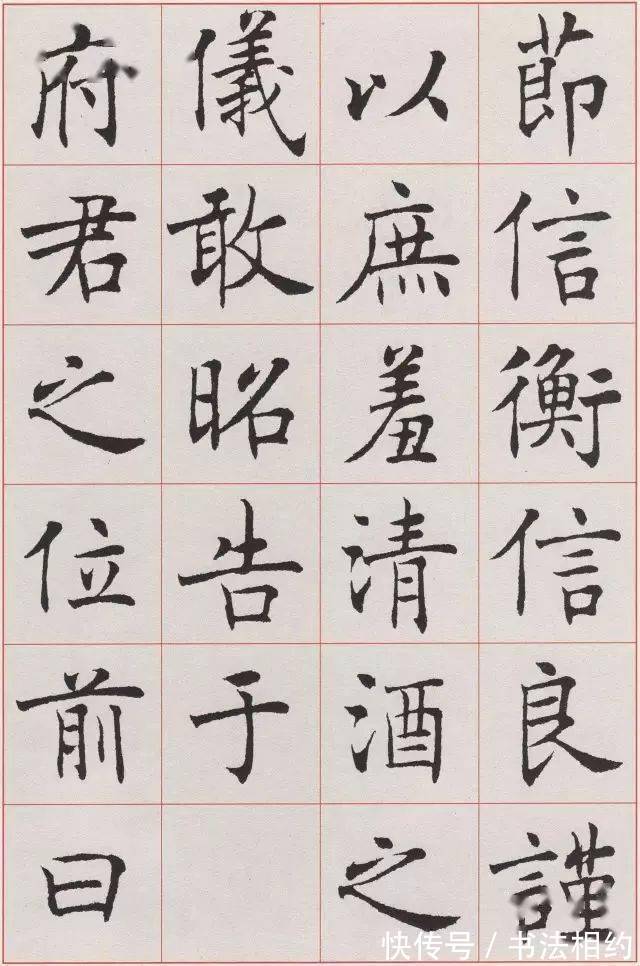 節信衡信良謹
以庶羞清酒之
儀敢昭告于
府君之位前曰
快传号/书法相约